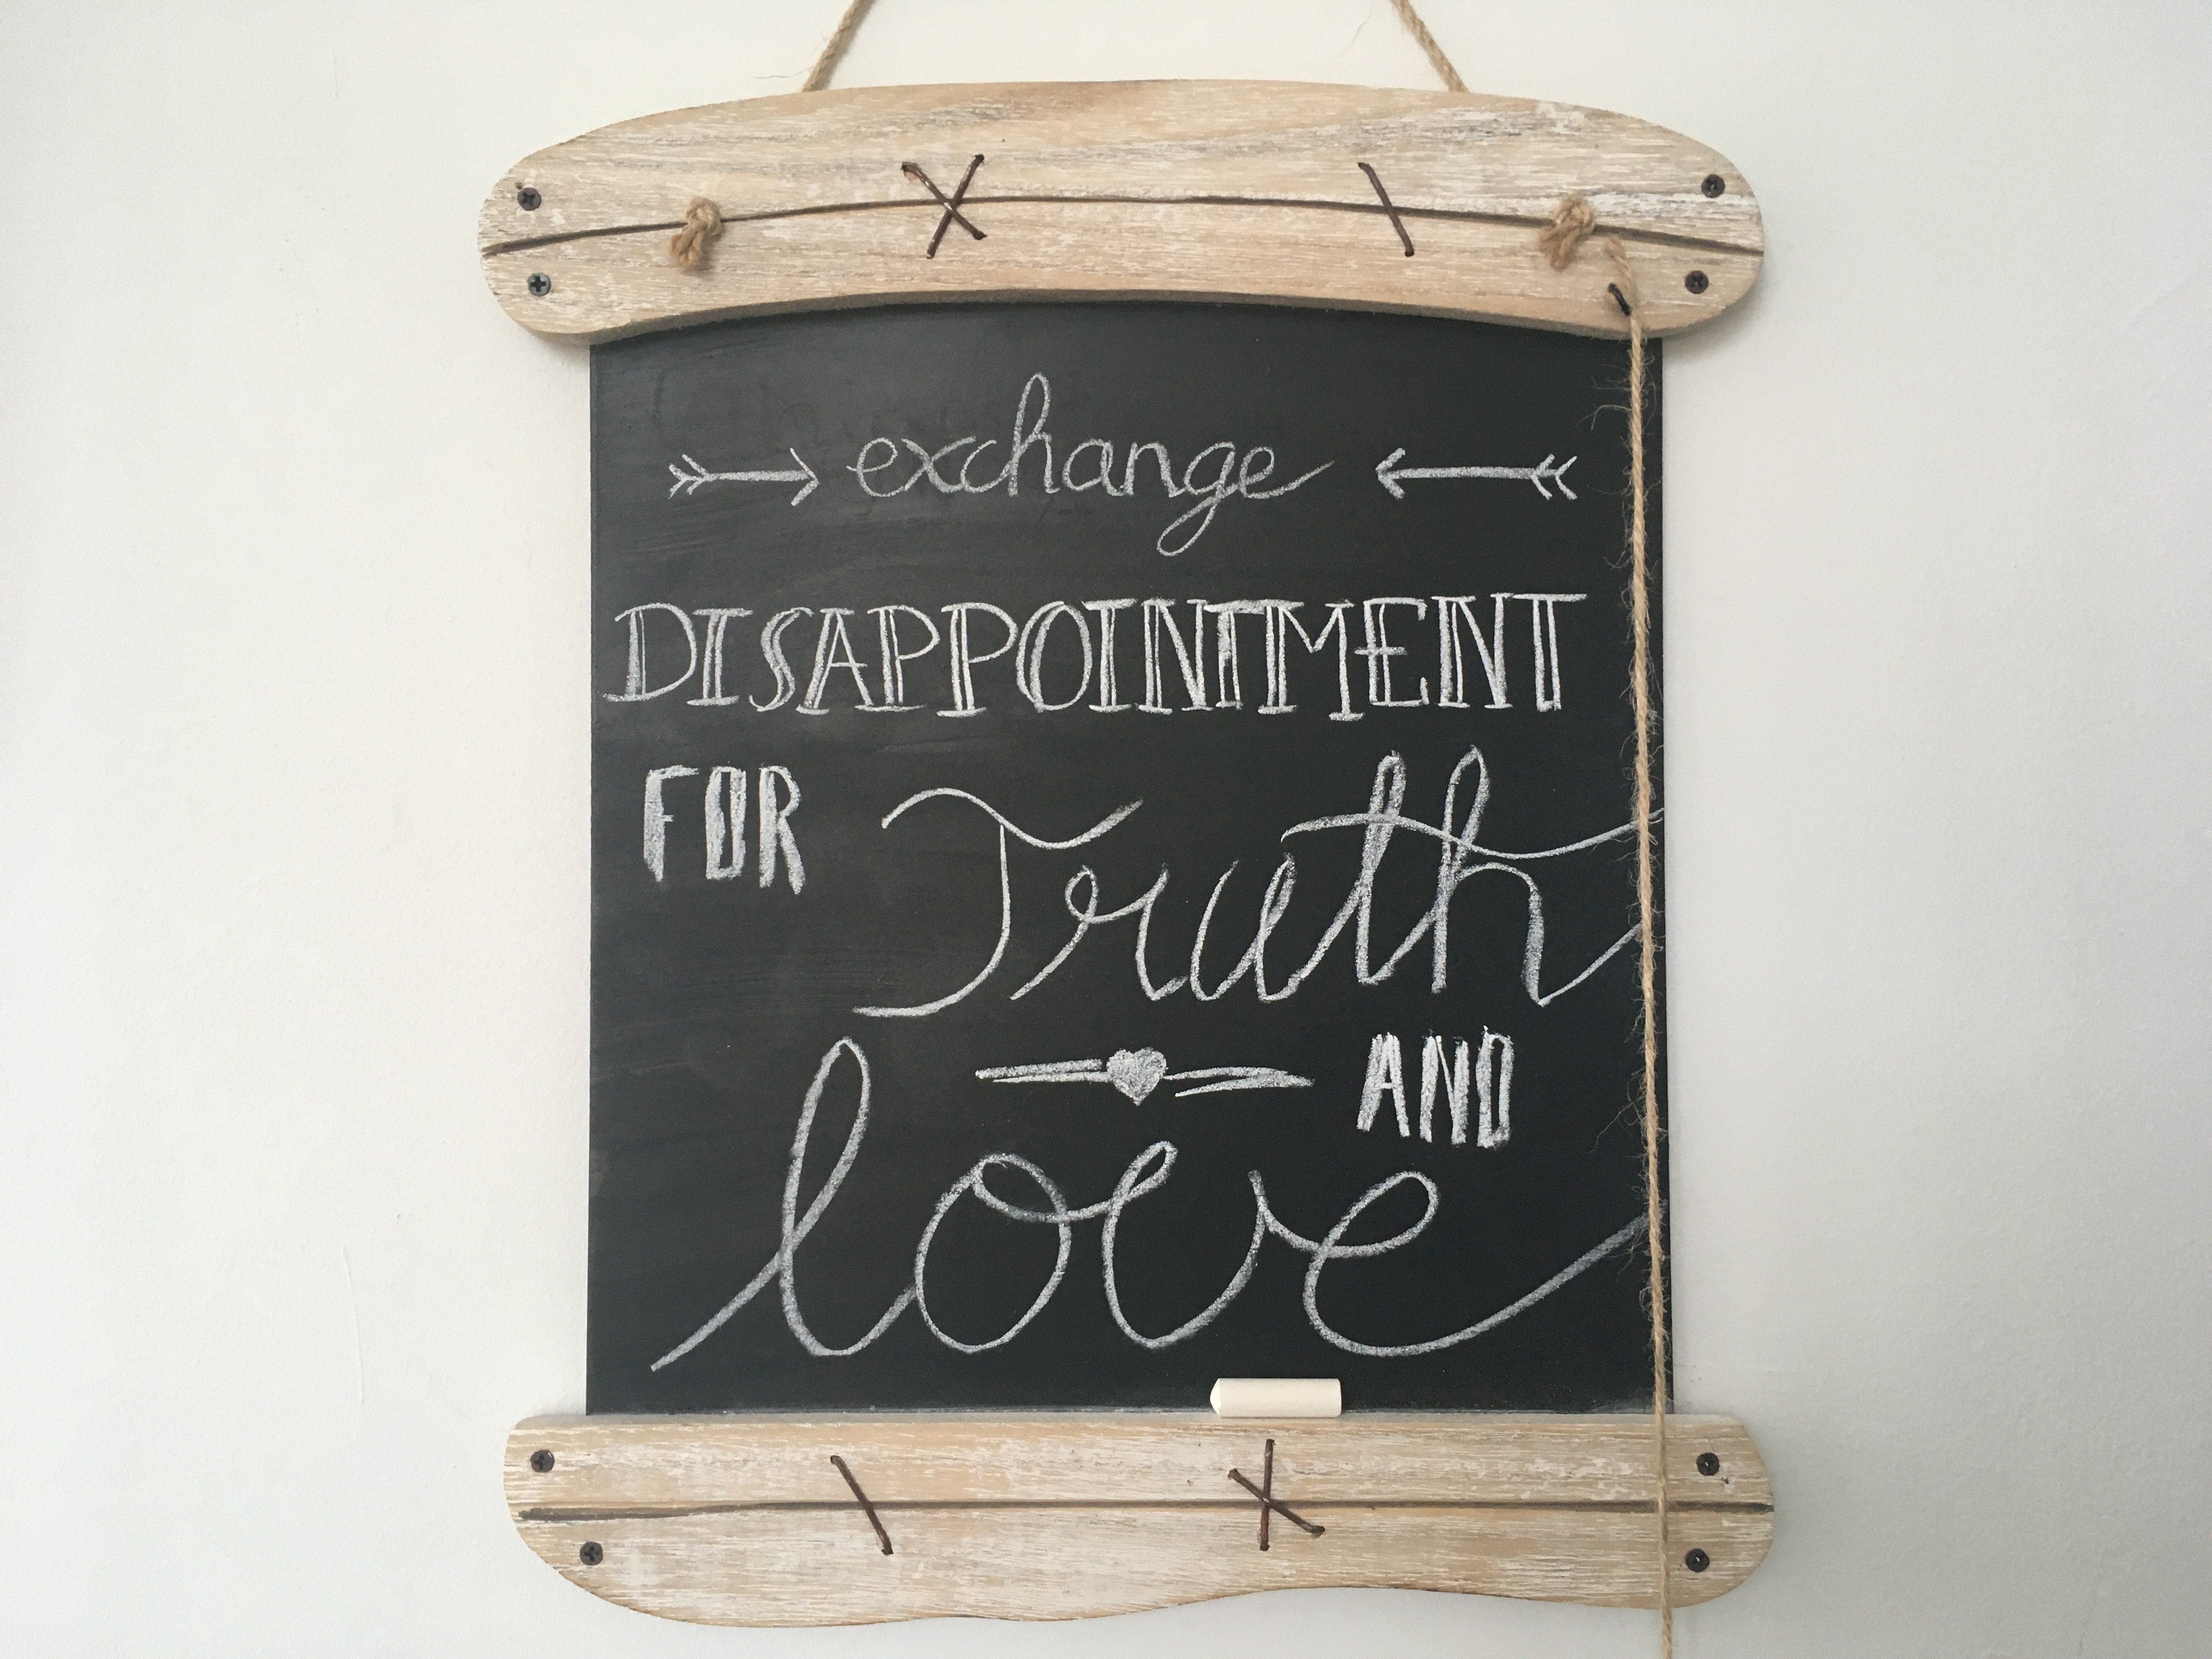 exchange
DISAPPOINTMENT
FOR Truth
AND
love